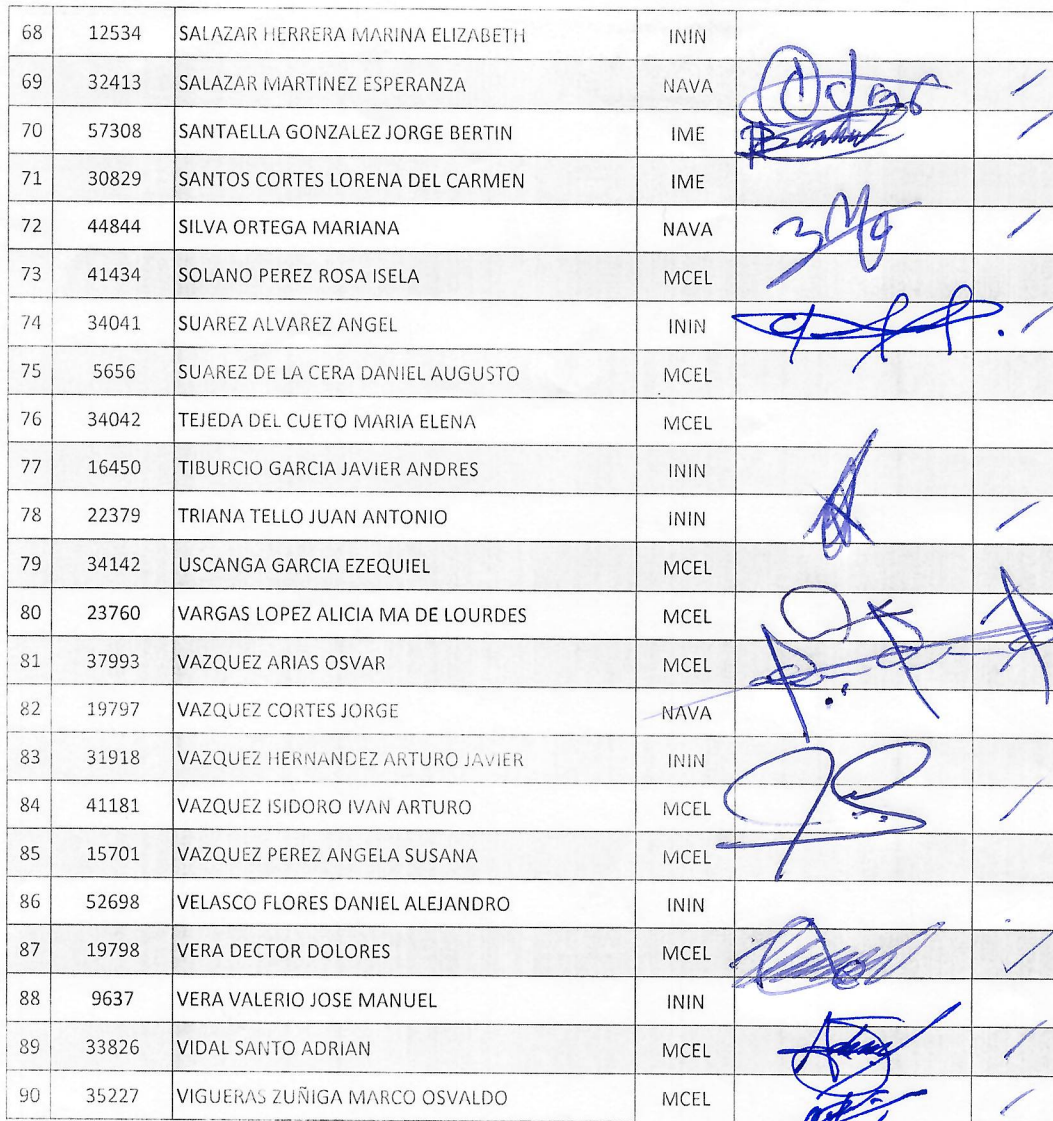 68 12534 SALAZAR HERRERA MARINA ELIZABETH ININ
69 32413 SALAZAR MARTINEZ ESPERANZA NAVA
70 57308 SANTAELLA GONZALEZ JORGE BERTIN IME
71 30829 SANTOS CORTES LORENA DEL CARMEN IME
72 44844 SILVA ORTEGA MARIANA NAVA
73 41434 SOLANO PEREZ ROSA ISELA MCEL
74 34041 SUAREZ ALVAREZ ANGEL ININ
75 5656 SUAREZ DE LA CERA DANIEL AUGUSTO MCEL
76 34042 TEJEDA DEL CUETO MARIA ELENA MCEL
77 16450 TIBURCIO GARCIA JAVIER ANDRES ININ
78 22379 TRIANA TELLO JUAN ANTONIO ININ
79 34142 USCANGA GARCIA EZEQUIEL MCEL
80 23760 VARGAS LOPEZ ALICIA MA DE LOURDES MCEL
81 37993 VAZQUEZ ARIAS OSVAR MCEL
82 19797 VAZQUEZ CORTES JORGE NAVA
83 31918 VAZQUEZ HERNANDEZ ARTURO JAVIER ININ
84 41181 VAZQUEZ ISIDORO IVAN ARTURO MCEL
85 15701 VAZQUEZ PEREZ ANGELA SUSANA MCEL
86 52698 VELASCO FLORES DANIEL ALEJANDRO ININ
87 19798 VERA DECTOR DOLORES MCEL
88 9637 VERA VALERIO JOSE MANUEL ININ
89 33826 VIDAL SANTO ADRIAN MCEL
90 35227 VIGUERAS ZUÑIGA MARCO OSVALDO MCEL